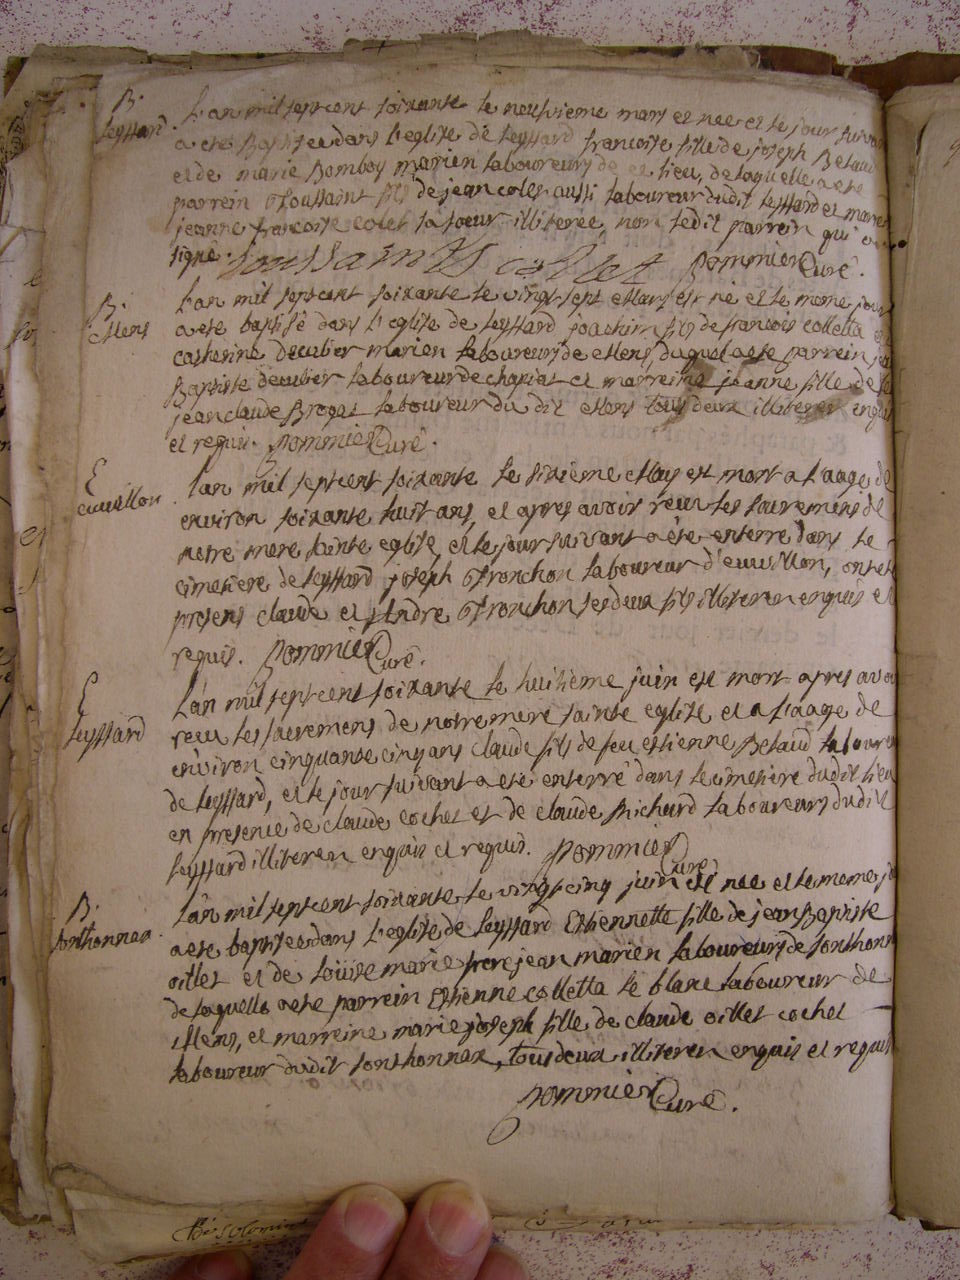 B.
Leyssard.
L'an mil sept cent soixante le neufvieme mars est nee et le jour suivan
a eté Baptisee dans l'eglise de Leyssard francoise fille de joseph Betaud
et de marie Bombois mariez laboureurs de ce lieu, de laquelle a eté
parrein Toussaint fils de jean colet aussi laboureur dudit Leyssard et marrei
jeanne francoise colet sa soeur illiteree, non ledit parrein qui a
signé. Toussaints collet pommier Curé.
B.
Mens
L'an mil sept cent soixante le vingt sept Mars est né et le meme jour
a eté baptisé dans l'eglise de Leyssard joachim fils de francois colletta et
catherine decubier mariez laboureurs de Mens, duquel a eté parrein jea
Baptiste decubier laboureur de chapiat et marreine jeanne fille de fe
jean claude Brogat laboureur du dit Mens tous deux illiterez enquis
et requis. pommier Curé.
E
euvillon
L'an mil sept cent soixante le sixième May est mort a l'aage de
environ soixante huit ans, et apres avoir receu les sacremens de
notre mere sainte eglise, et le jour suivant a eté enterré dans le
cimetiere de Leyssard joseph Tronchon laboureur d'euvillon, ont eté
presens claude et Andre Tronchon ses deux fils illiterez enquis et
requis. pommier Curé.
E
Leyssard
L'an mil sept cent soixante le huitieme juin est mort apres avoi
receu les sacremens de notre mere sainte eglise et a l'aage de
environ cinquante cinq ans claude fils de feu estienne Betaud laboureu
de Leyssard, et le jour suivant a eté enterré dans le cimetiere dudit lieu
en presence de claude cochet et de claude Michard laboureurs dudit
Leyssard illiterez enquis et requis. pommier Curé
B.
Sonthonnax.
L'an mil sept cent soixante le vingt cinq juin est nee et le meme jo
a eté baptisee dans l'eglise de Leyssard Estiennette fille de jean Baptiste
oillet et de Louise marie frerejean mariez laboureurs de Sonthonn
de laquelle a eté parrein Estienne colletta le blanc laboureur de
Mens, et marreine marie joseph fille de claude oillet cochet
laboureur dudit Sonthonnax, tous deux illiterez enquis et requis
pommier Curé.